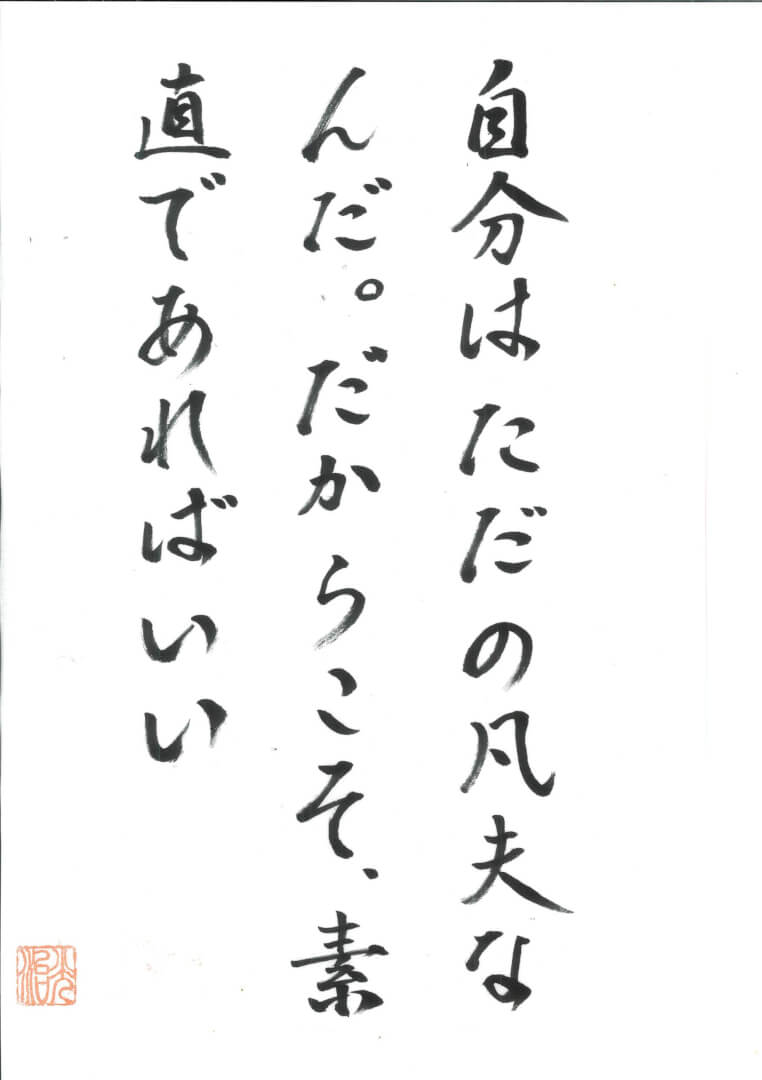 自分はただの凡夫な
んだ。だからこそ、素
直であればいい